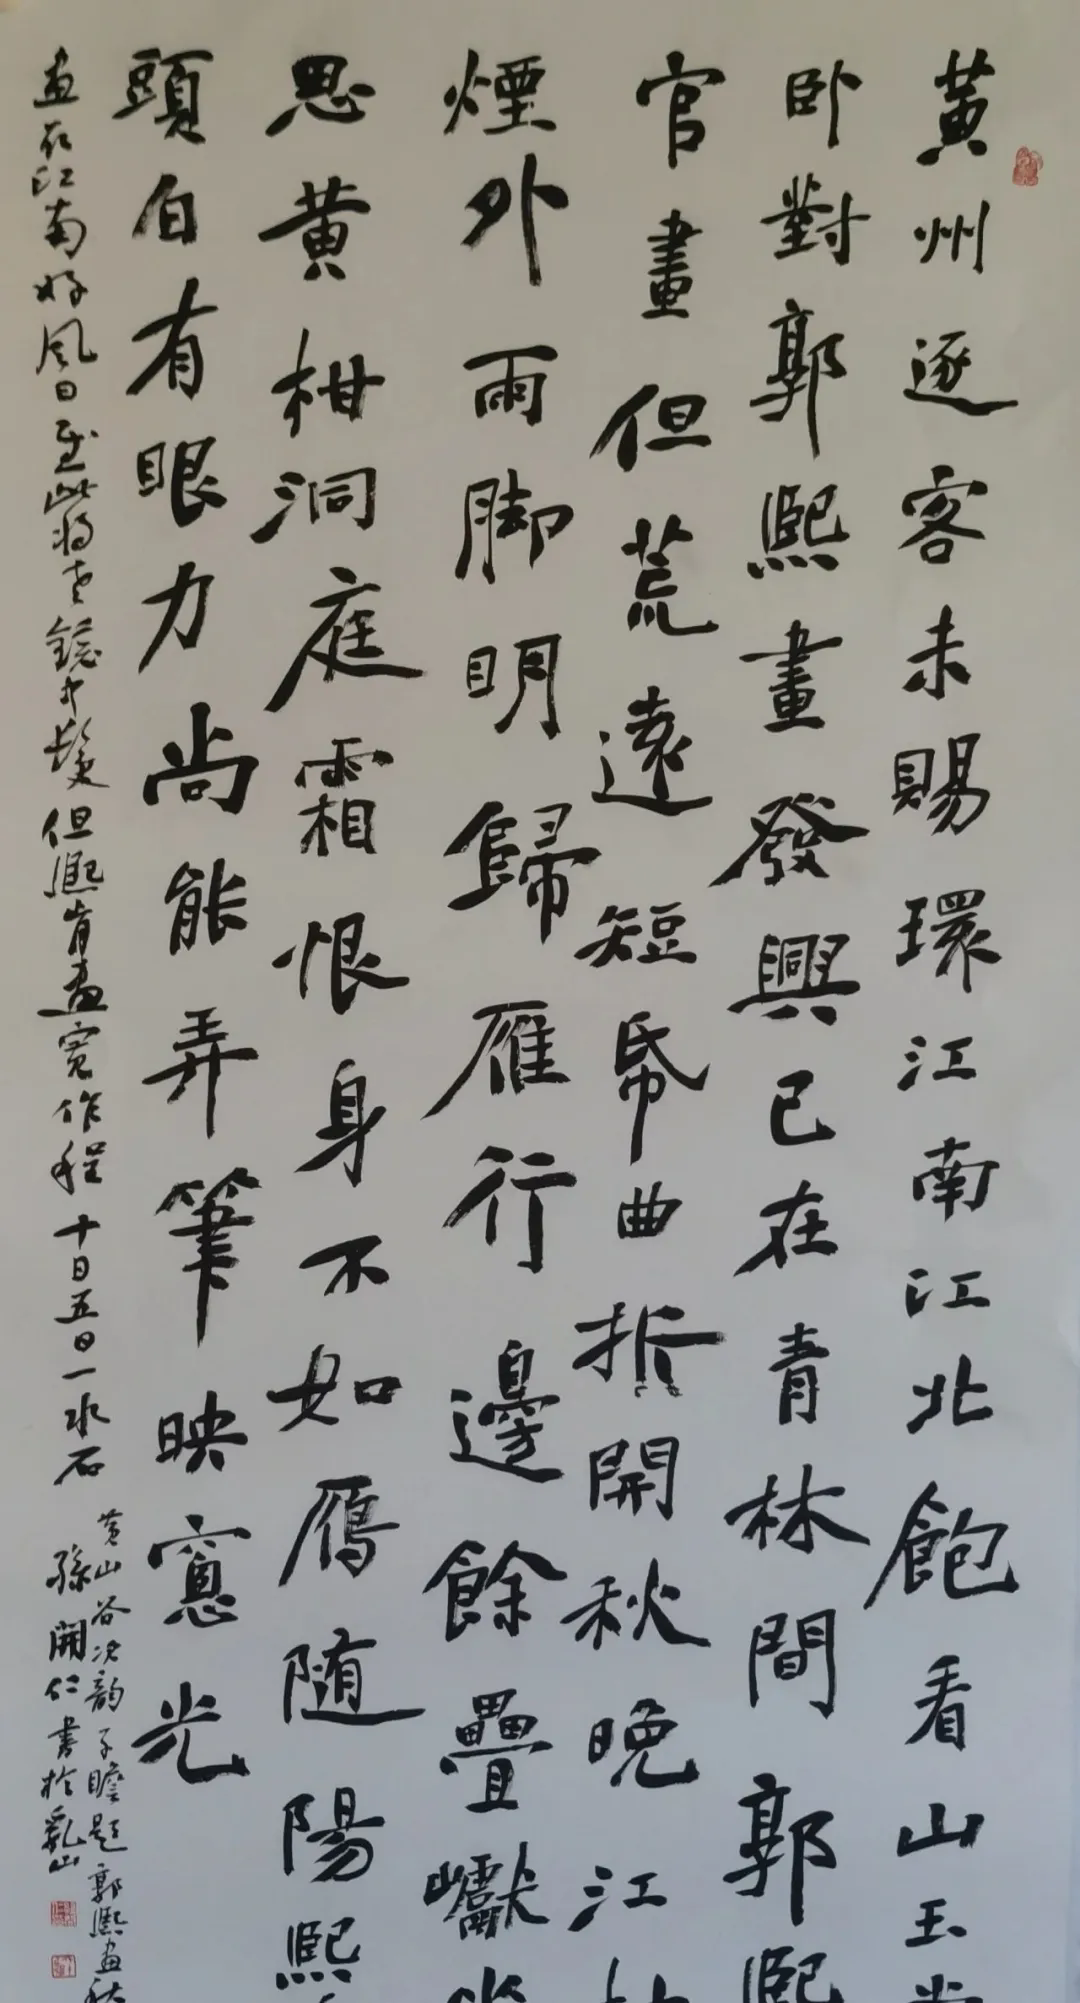 黄州逐客未賜環江南江北飽看山玉堂
卧對郭熙畫發興已在青林間郭熙
官畫但荒遠短帋曲折開秋晚江村
煙外雨脚明歸雁行邊餘疊巘坐
思黄柑洞庭霜恨身不如雁随陽熙
頭白有眼力尚能弄筆映窻光
畫取江南好風日慰此將老鏡中髮但熙肯畫寬作程十日五日一水石
黄山谷次韵子瞻題郭熙畫秋
孫開仁書於乳山